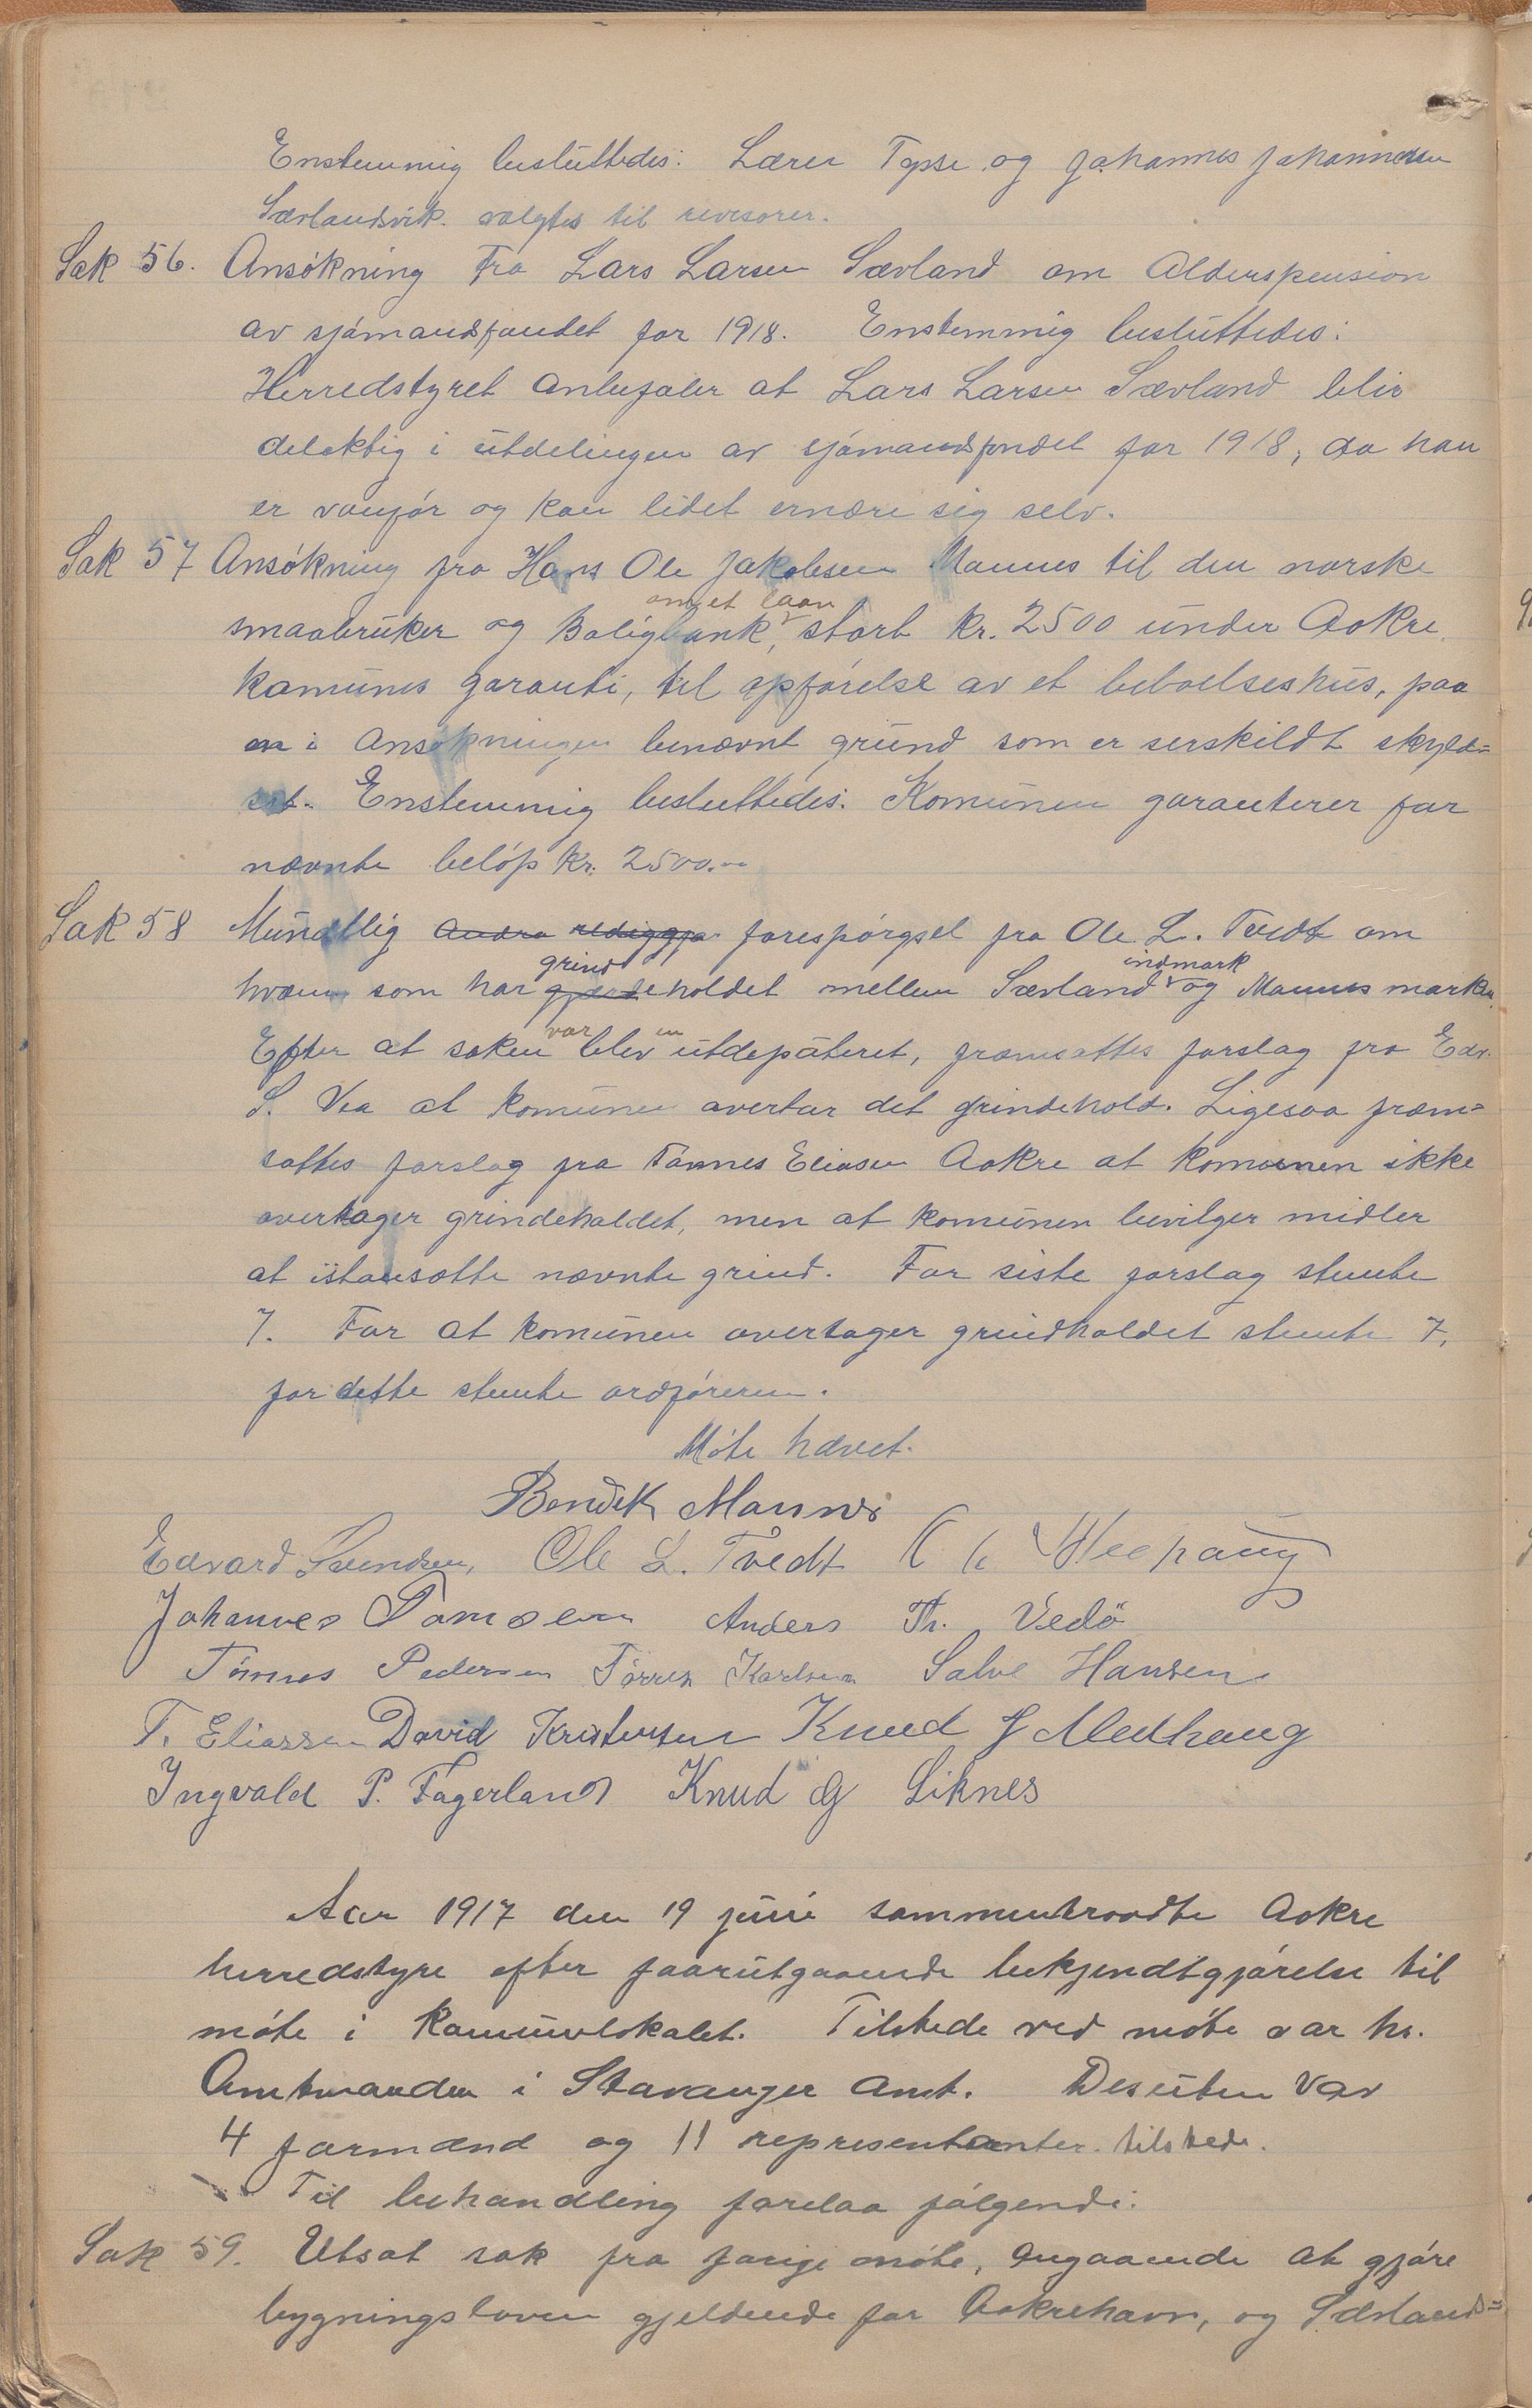 Enstemmig besluttedes: Lærer Topse og Johannes Johannesen
Sævlandsvik. valgtes til revisorer.
Sak 56. Ansökning Fra Lars Larsen Sævland om Alderspension
av sjömandsfondet for 1918. Enstemmig besluttedes:
Herredstyret Anbefaler at Lars Larsen Sævland blir
delaktig i utdelingen av sjömandsfondet for 1918, da han
er vanför og kan lidet ernære sig selv.
Sak 57 Ansökning fra Hans Ole Jakobsen Mannes til den norske
om et laan
smaabruker og Boligbank, stort kr. 2500 under Aakre
Komunes garanti, til opförelse av et beboelseshus, paa
en i Ansökningen benævnt grund som er serskildt skyld=
sat. Enstemmig besluttedes. Komunen garanterer for
nævnte belöp kr. 2500.00
Sak 58 Mundtlig forespörgsel fra Ole L. Tvedt om
grind indmark
hvem som har gjerdeholdet mellem Sævland og Mannes marken.
var en
Efter at saken blev utdepateret, fremsattes forslag fra Edv.
S. Vea at komunen overtar det grindehold. Ligesaa frem=
sattes forslag fra Tönnes Eliasen Aakre at komunen ikke
overtager grindeholdet, men at komunen bevilger midler
at istansætte nævnte grind. For siste forslag stemte
7. For at komunen overtager grindholdet stemte 7,
for dette stemte ordföreren.
Möte hævet.
Bendik Mannes
Edvard Svendsen, Ole L. Tvedt
Johannes Tomsen Anders Th. Vedö
Tönnes Pedersen Törres Karlsen Salve Hansen
T. Eliassen David Kristensen Knud J Medhaug
Ingvald P. Fagerland Knud G Liknes
Aar 1917 den 19 juni sammentraadte Aakre
herredstyre efter forutgaaende bekjendtgjörelse til
möte i Komunelokalet. Tilstede ved möte var hr.
Amtmanden i Stavanger Amt. Desuten var
4 formænd og 11 representanter tilstede.
Til behandling forelaa fölgende:
Sak 59. Utsat sak fra forige möte, angaaende at gjöre
bygningsloven gjeldende for Aakrehavn, og Sævland=